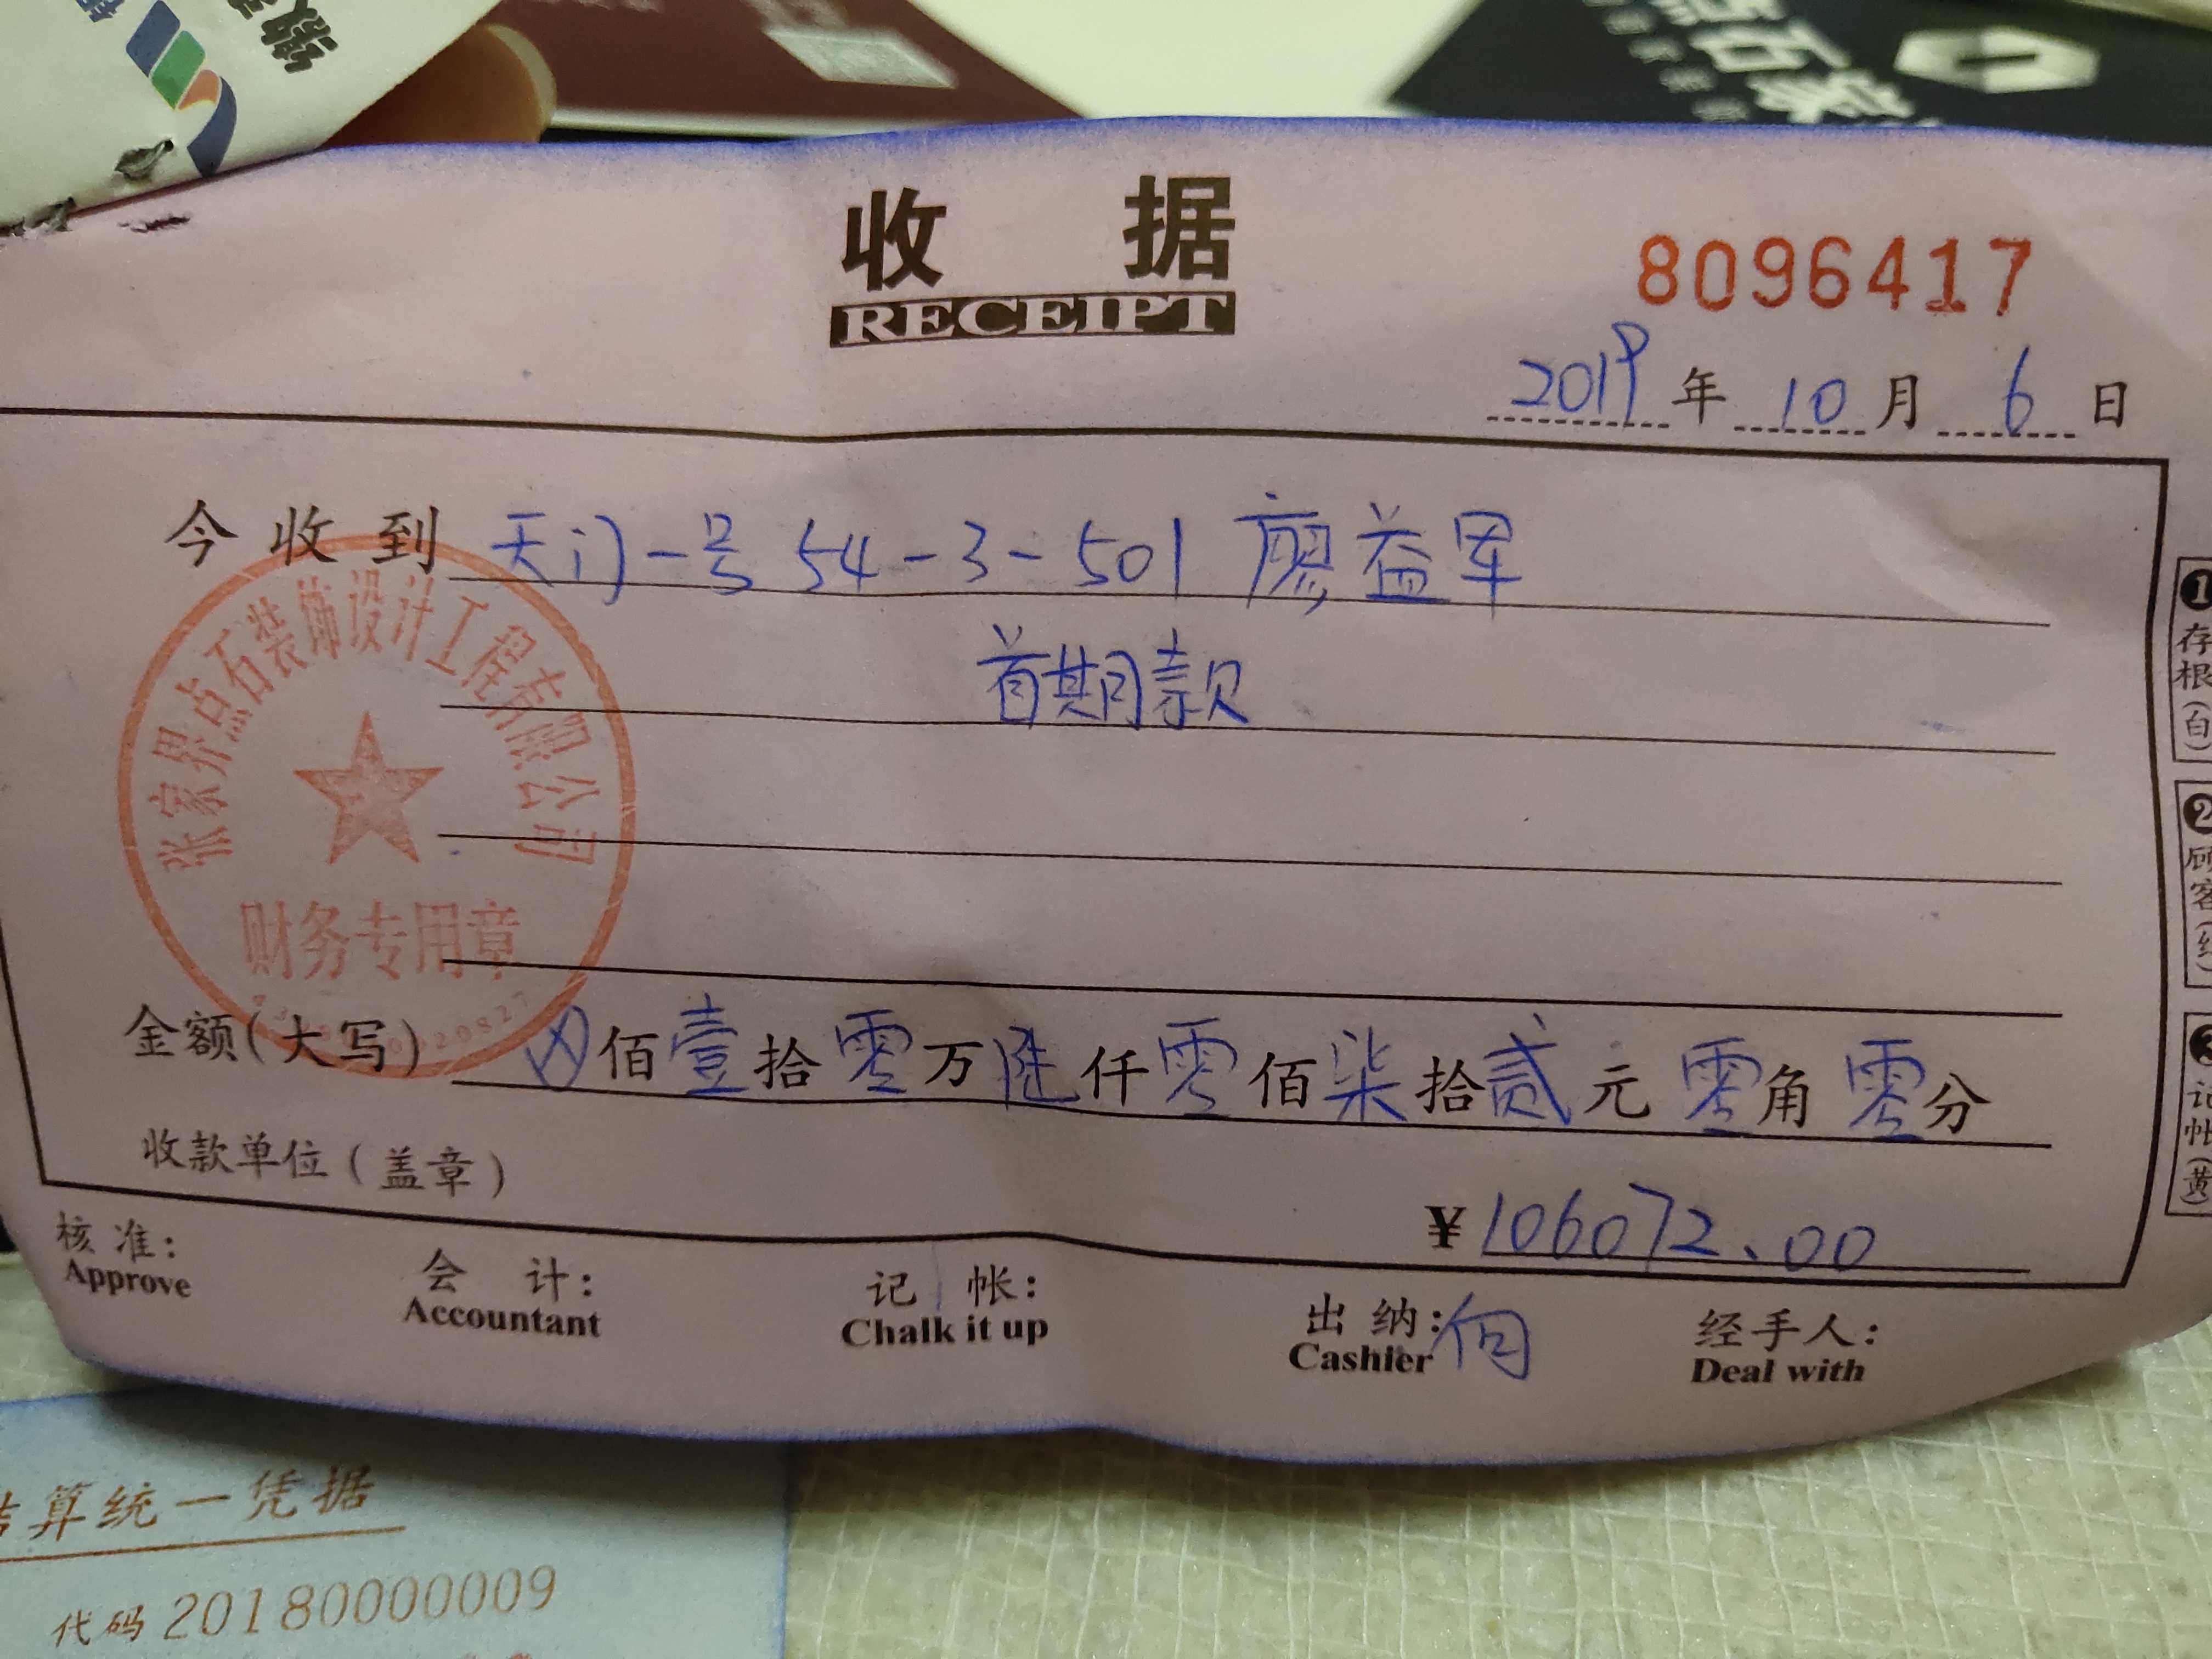 收 据
RECEIPT
8096417
2019 年 10 月 6 日
今 收 到 天门一号 54-3-501 廖益军
首期款
张家界点石装饰设计工程有限公司
财务专用章
金额(大写) 佰壹拾零万陆仟零佰柒拾贰元零角零分
收款单位(盖章)
¥106072.00
核 准:
Approve
会 计:
Accountant
记 帐:
Chalk it up
出 纳: 向
Cashier
经手人:
Deal with
1 存根(白)
2 顾客(红)
3 记帐(黄)
算统一凭据
代码 20180000009